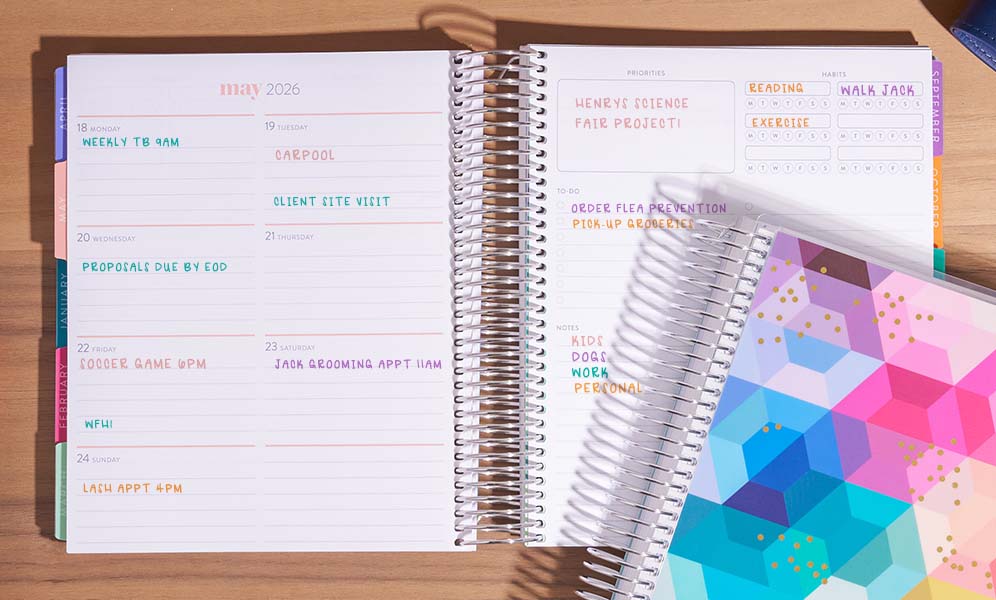 may 2026
18 MONDAY
WEEKLY TB 9AM
19 TUESDAY
CARPOOL
CLIENT SITE VISIT
20 WEDNESDAY
PROPOSALS DUE BY EOD
21 THURSDAY
22 FRIDAY
SOCCER GAME 6PM
WFH!
23 SATURDAY
JACK GROOMING APPT 11AM
24 SUNDAY
LASH APPT 4PM
APRIL
MAY
JANUARY
FEBRUARY
MARCH
PRIORITIES
HENRYS SCIENCE
FAIR PROJECT!
HABITS
READING
M T W T F S S
WALK JACK
M T W T F S S
EXERCISE
M T W T F S S
M T W T F S S
M T W T F S S
M T W T F S S
TO-DO
ORDER FLEA PREVENTION
PICK-UP GROCERIES
NOTES
KIDS
DOGS
WORK
PERSONAL
SEPTEMBER
OCTOBER